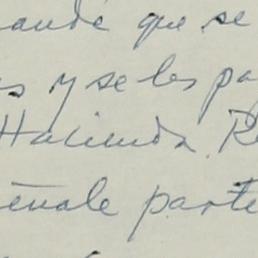 mandé que se
es y se les pa
Hacienda. Re
énale parte